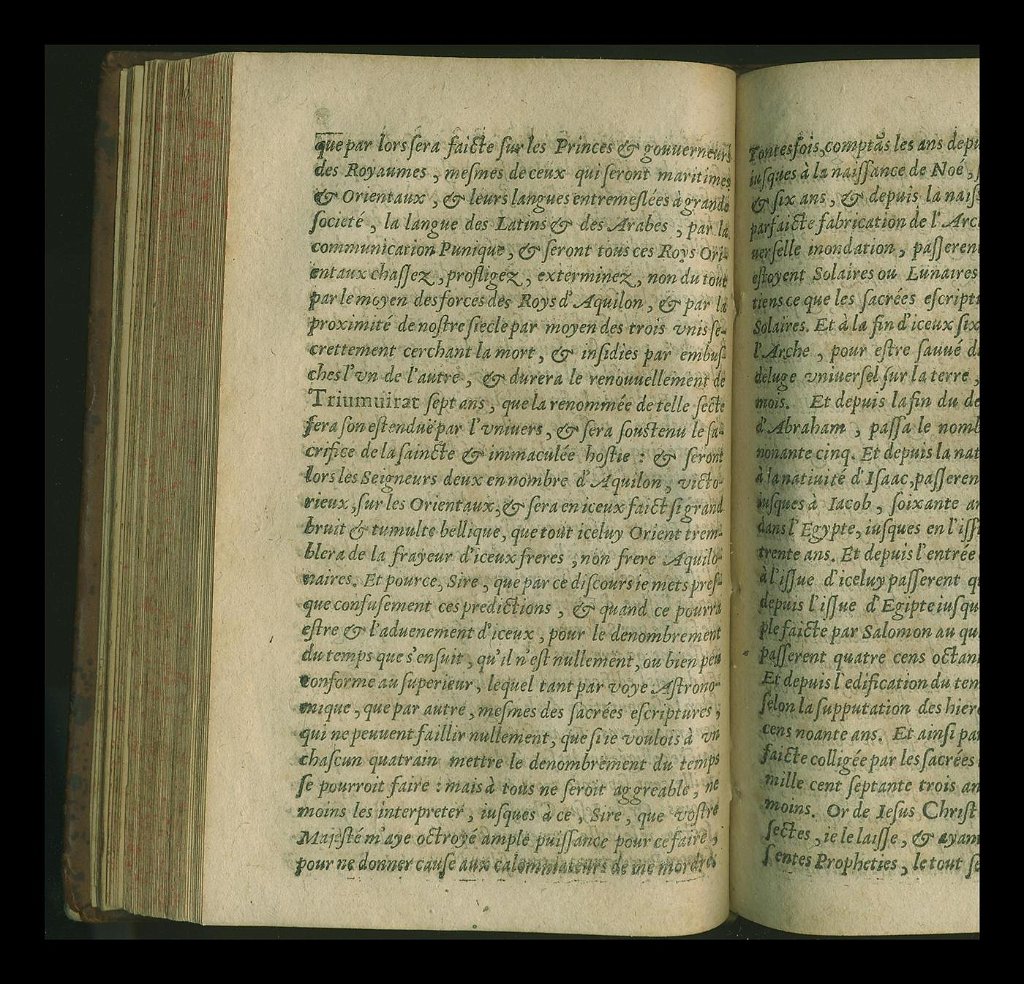 que par lors sera faicte sur les Princes & gouuerneurs
des Royaumes, mesmes de ceux qui seront maritimes
& Orientaux, & leurs langues entremeslées à grande
societé, la langue des Latins & des Arabes, par la
communication Punique, & seront tous ces Roys Ori-
entaux chassez, profligez, exterminez, non du tout
par le moyen des forces des Roys d'Aquilon, & par la
proximité de nostre siecle par moyen des trois vnis se-
crettement cerchant la mort, & insidies par embus-
ches l'vn de l'autre, & durera le renouuellement de
Triumuirat sept ans, que la renommée de telle secte
fera son estenduë par l'vniuers, & sera soustenu le sa-
crifice de la saincte & immaculée hostie : & seront
lors les Seigneurs deux en nombre d'Aquilon, victo-
rieux, sur les Orientaux, & sera en iceux faict si grand
bruit & tumulte bellique, que tout iceluy Orient trem-
blera de la frayeur d'iceux freres, non frere Aquilo-
naires. Et pource, Sire, que par ce discours ie mets pres-
que confusement ces predictions, & quand ce pourra
estre & l'aduenement d'iceux, pour le denombrement
du temps que s'ensuit, qu'il n'est nullement, ou bien peu
conforme au superieur, lequel tant par voye Astrono-
mique, que par autre, mesmes des sacrées escriptures,
qui ne peuuent faillir nullement, que si ie voulois à vn
chascun quatrain mettre le denombrement du temps
se pourroit faire : mais à tous ne seroit aggreable, ne
moins les interpreter, iusques à ce, Sire, que vostre
Majesté m'aye octroyé ample puissance pour ce faire,
pour ne donner cause aux calomniateurs de me mordre.
Toutesfois, comptãs les ans depu
iusques à la naissance de Noé,
& six ans, & depuis la naiss
parfaicte fabrication de l'Arc
uerselle inondation, passeren
estoyent Solaires ou Lunaires
tiens ce que les sacrées escripti
Solaires. Et à la fin d'iceux six
l'Arche, pour estre sauué d
deluge vniuersel sur la terre,
mois. Et depuis la fin du de
d'Abraham, passa le nomb
nonante cinq. Et depuis la nat
à la natiuité d'Isaac, passeren
iusques à Iacob, soixante an
dans l'Egypte, iusques en l'iss
trente ans. Et depuis l'entrée
à l'issue d'iceluy passerent q
depuis l'issue d'Egipte iusqu
ple faicte par Salomon au qu
passerent quatre cens octan
Et depuis l'edification du tem
selon la supputation des hier
cens noante ans. Et ainsi par
faicte colligée par les sacrées
mille cent septante trois an
moins. Or de Iesus Christ
sectes, ie le laisse, & ayan
sentes Propheties, le tout se